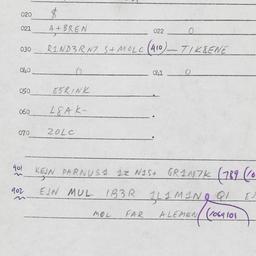 020 $
021 A+BREN 022 0
030 RINDERNT S+MOLC (410) - TIKBENE
040 0 041 0
050 EERINK
060 LEAK-
070 ZOLC
901 KEJN DARNUS1 12 NIS+ GR1M7K (789
902 EJN MUL 1B3R 1L1M1N QI
MOL FAR ALEMEN (1064101